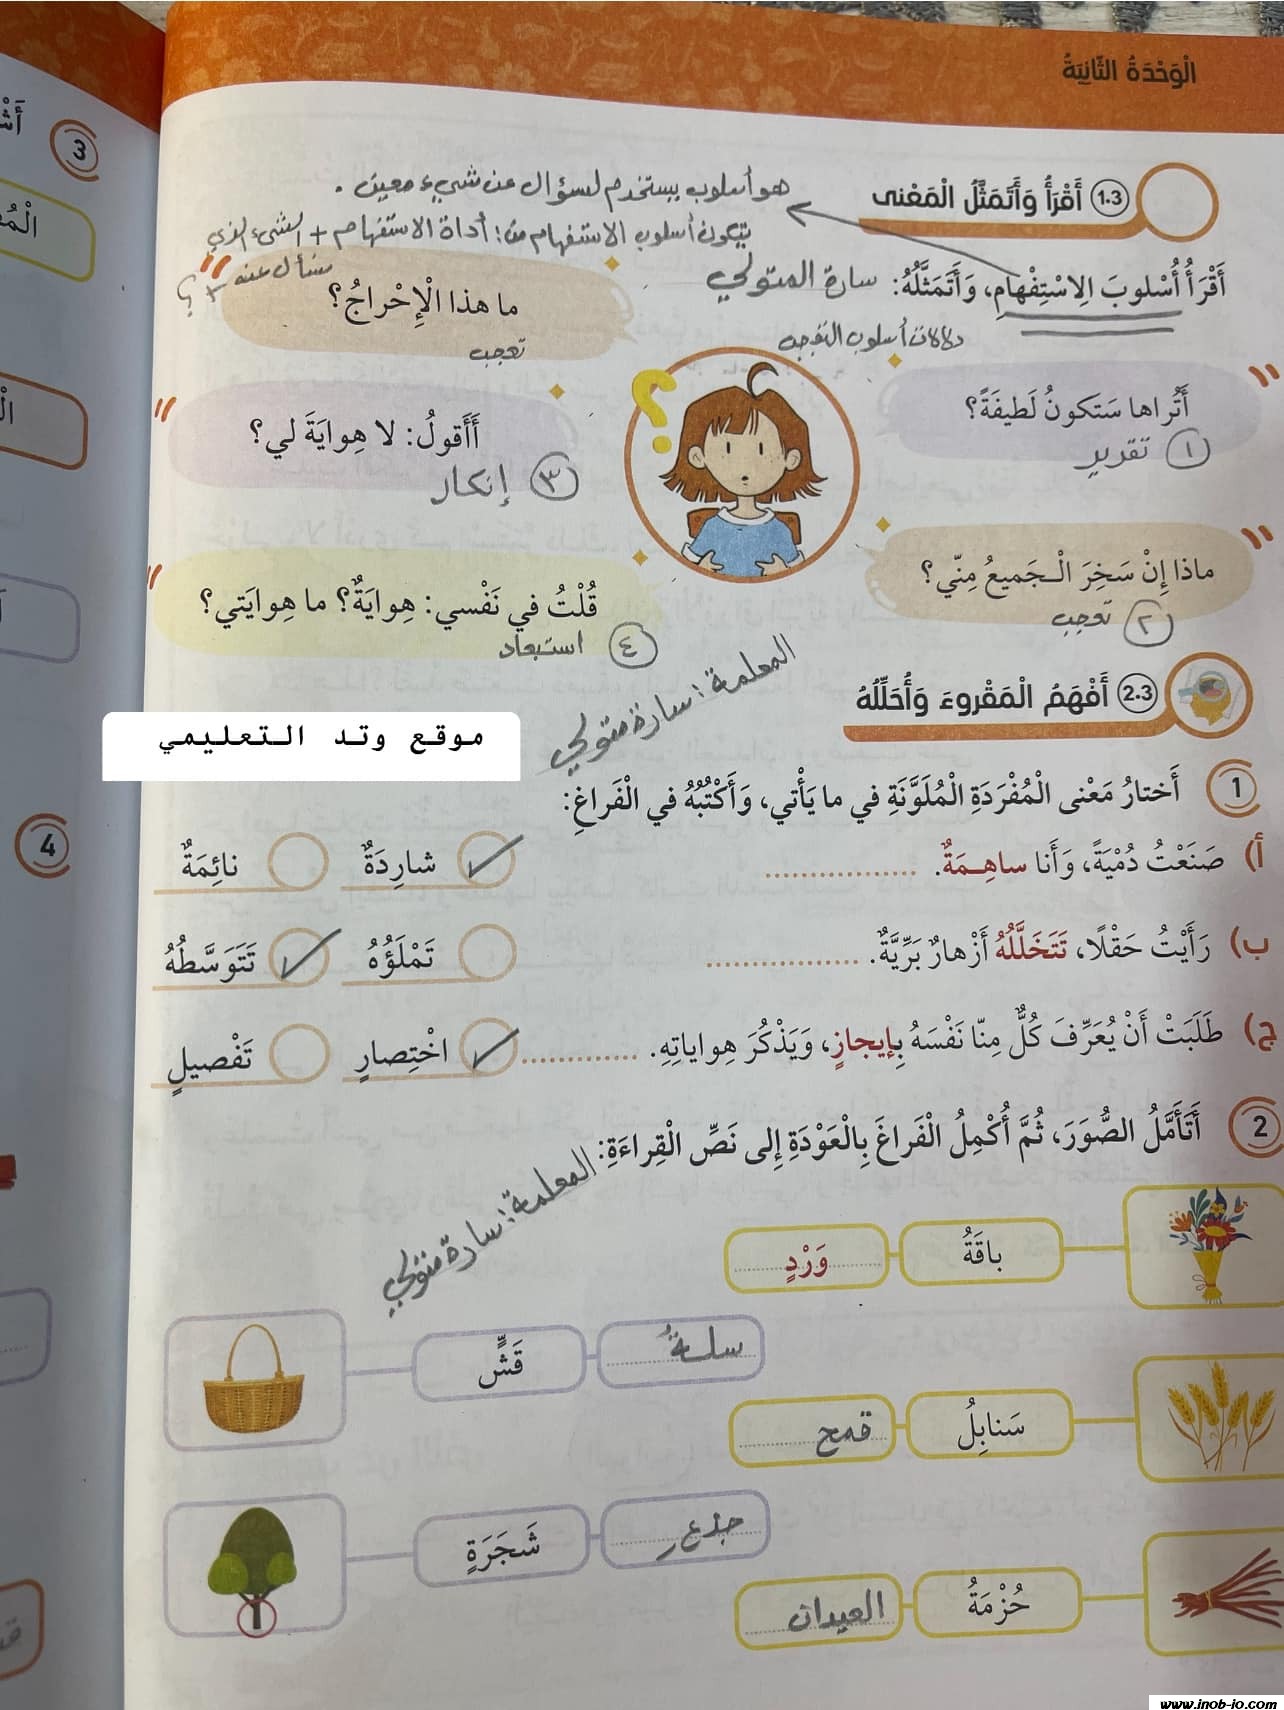 الْوَحْدَةُ الثّانِيَةُ
1.3 أَقْرَأُ وَأَتَمَثَّلُ الْمَعْنى
هو أسلوب يستخدم لسؤال عن شيء معين.
يتكون أسلوب الاستفهام من: أداة الاستفهام + الشيء الذي
نسأل عنه + ؟
أَقْرَأُ أُسْلوبَ الِاسْتِفْهامِ، وَأَتَمَثَّلُهُ:
سارة المتولي
ما هذا الْإِحْراجُ؟
تعجب
دلالات أسلوب التعجب
أَتُراها سَتَكونُ لَطيفَةً؟
١ تقرير
أَأَقولُ: لا هِوايَةَ لي؟
٣ إنكار
ماذا إِنْ سَخِرَ الْجَميعُ مِنّي؟
٢ تعجب
قُلْتُ في نَفْسي: هِوايَةٌ؟ ما هِوايَتي؟
٤ استبعاد
2.3 أَفْهَمُ الْمَقْروءَ وَأُحَلِّلُهُ
المعلمة: سارة متولي
موقع وتد التعليمي
1 أَختارُ مَعْنى الْمُفْرَدَةِ الْمُلَوَّنَةِ في ما يَأْتي، وَأَكْتُبُهُ في الْفَراغِ:
أ) صَنَعْتُ دُمْيَةً، وَأَنا ساهِمَةٌ. ................ شارِدَةٌ نائِمَةٌ
ب) رَأَيْتُ حَقْلًا، تَتَخَلَّلُهُ أَزْهارٌ بَرِّيَّةٌ. ................ تَمْلَؤُهُ تَتَوَسَّطُهُ
ج) طَلَبَتْ أَنْ يُعَرِّفَ كُلٌّ مِنّا نَفْسَهُ بِإيجازٍ، وَيَذْكُرَ هِواياتِهِ. ............ اخْتِصارٍ تَفْصيلٍ
2 أَتَأَمَّلُ الصُّوَرَ، ثُمَّ أُكْمِلُ الْفَراغَ بِالْعَوْدَةِ إِلى نَصِّ الْقِراءَةِ:
المعلمة: سارة متولي
باقَةُ وَرْدٍ
سلةُ قَشٍّ
سَنابِلُ قمح
جذع شَجَرَةٍ
حُزْمَةُ العيدان
3
4
www.inob-io.com